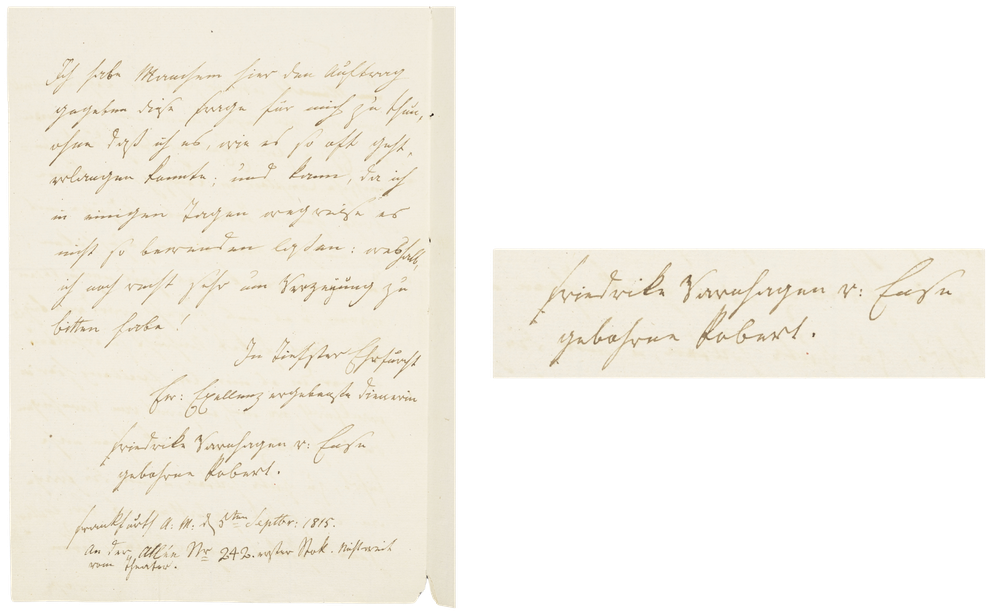 Ich habe Manchem hier den Auftrag
gegeben diese frage für mich zu thun,
ohne daß ich es, wie es so oft geht,
erlangen konnte; und kann, da ich
in einigen Tagen wegreise es
nicht so bewenden laßen: weshalb,
ich noch recht sehr um Verzeiung zu
bitten habe!
In tiefster Ehrfurcht
Ew: Exellenz ergebenste dienerin
friedrike Varnhagen v: Ense
gebohrne Robert.
frankfurth a: M: d 5ten Septbr: 1815.
An der Allée Nr 242. erster Stok. Nichtweit
vom theater.
friedrike Varnhagen v: Ense
gebohrne Robert.